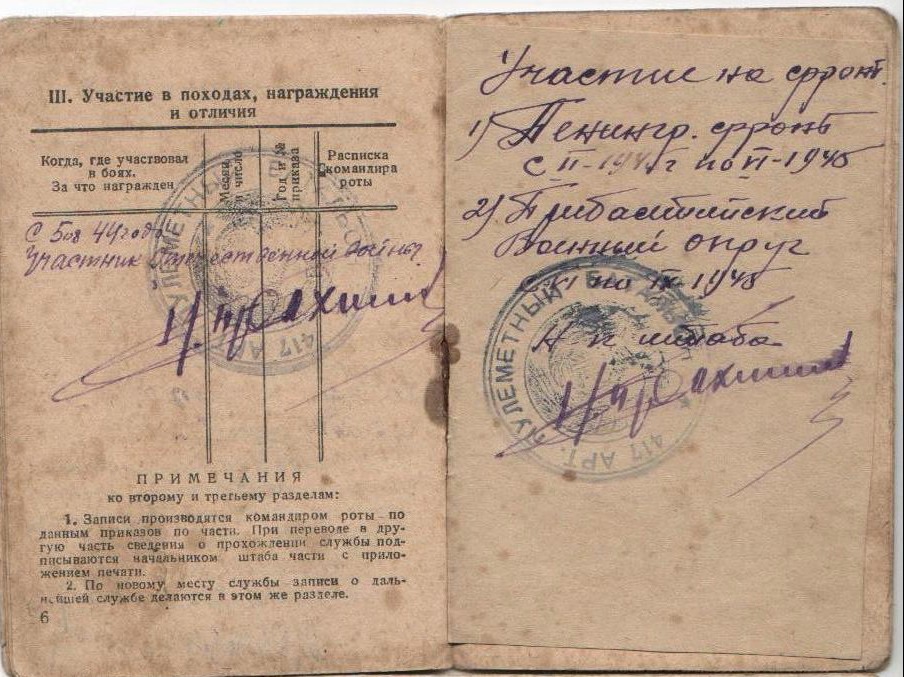 III. Участие в походах, награждения
и отличия
Когда, где участвовал
в боях.
За что награжден
Месяц
число
Год и №
приказа
Расписка
командира
роты
С 44 года
участник отечественной войны
ПУЛЕМЕТНЫЙ
417 АРТ.
ПРИМЕЧАНИЯ
ко второму и третьему разделам:
1. Записи производятся командиром роты по
данным приказов по части. При переводе в дру-
гую часть сведения о прохождении службы под-
писываются начальником штаба части с прило-
жением печати.
2. По новому месту службы записи о даль-
нейшей службе делаются в этом же разделе.
6
Участие на фронт.
1) Ленингр. фронт
с II-194 г по VI-1945
2) Прибалтийский
Военный округ
по IX 1945
штаба
ПУЛЕМЕТНЫЙ БАТАЛЬ
417 АРТ.